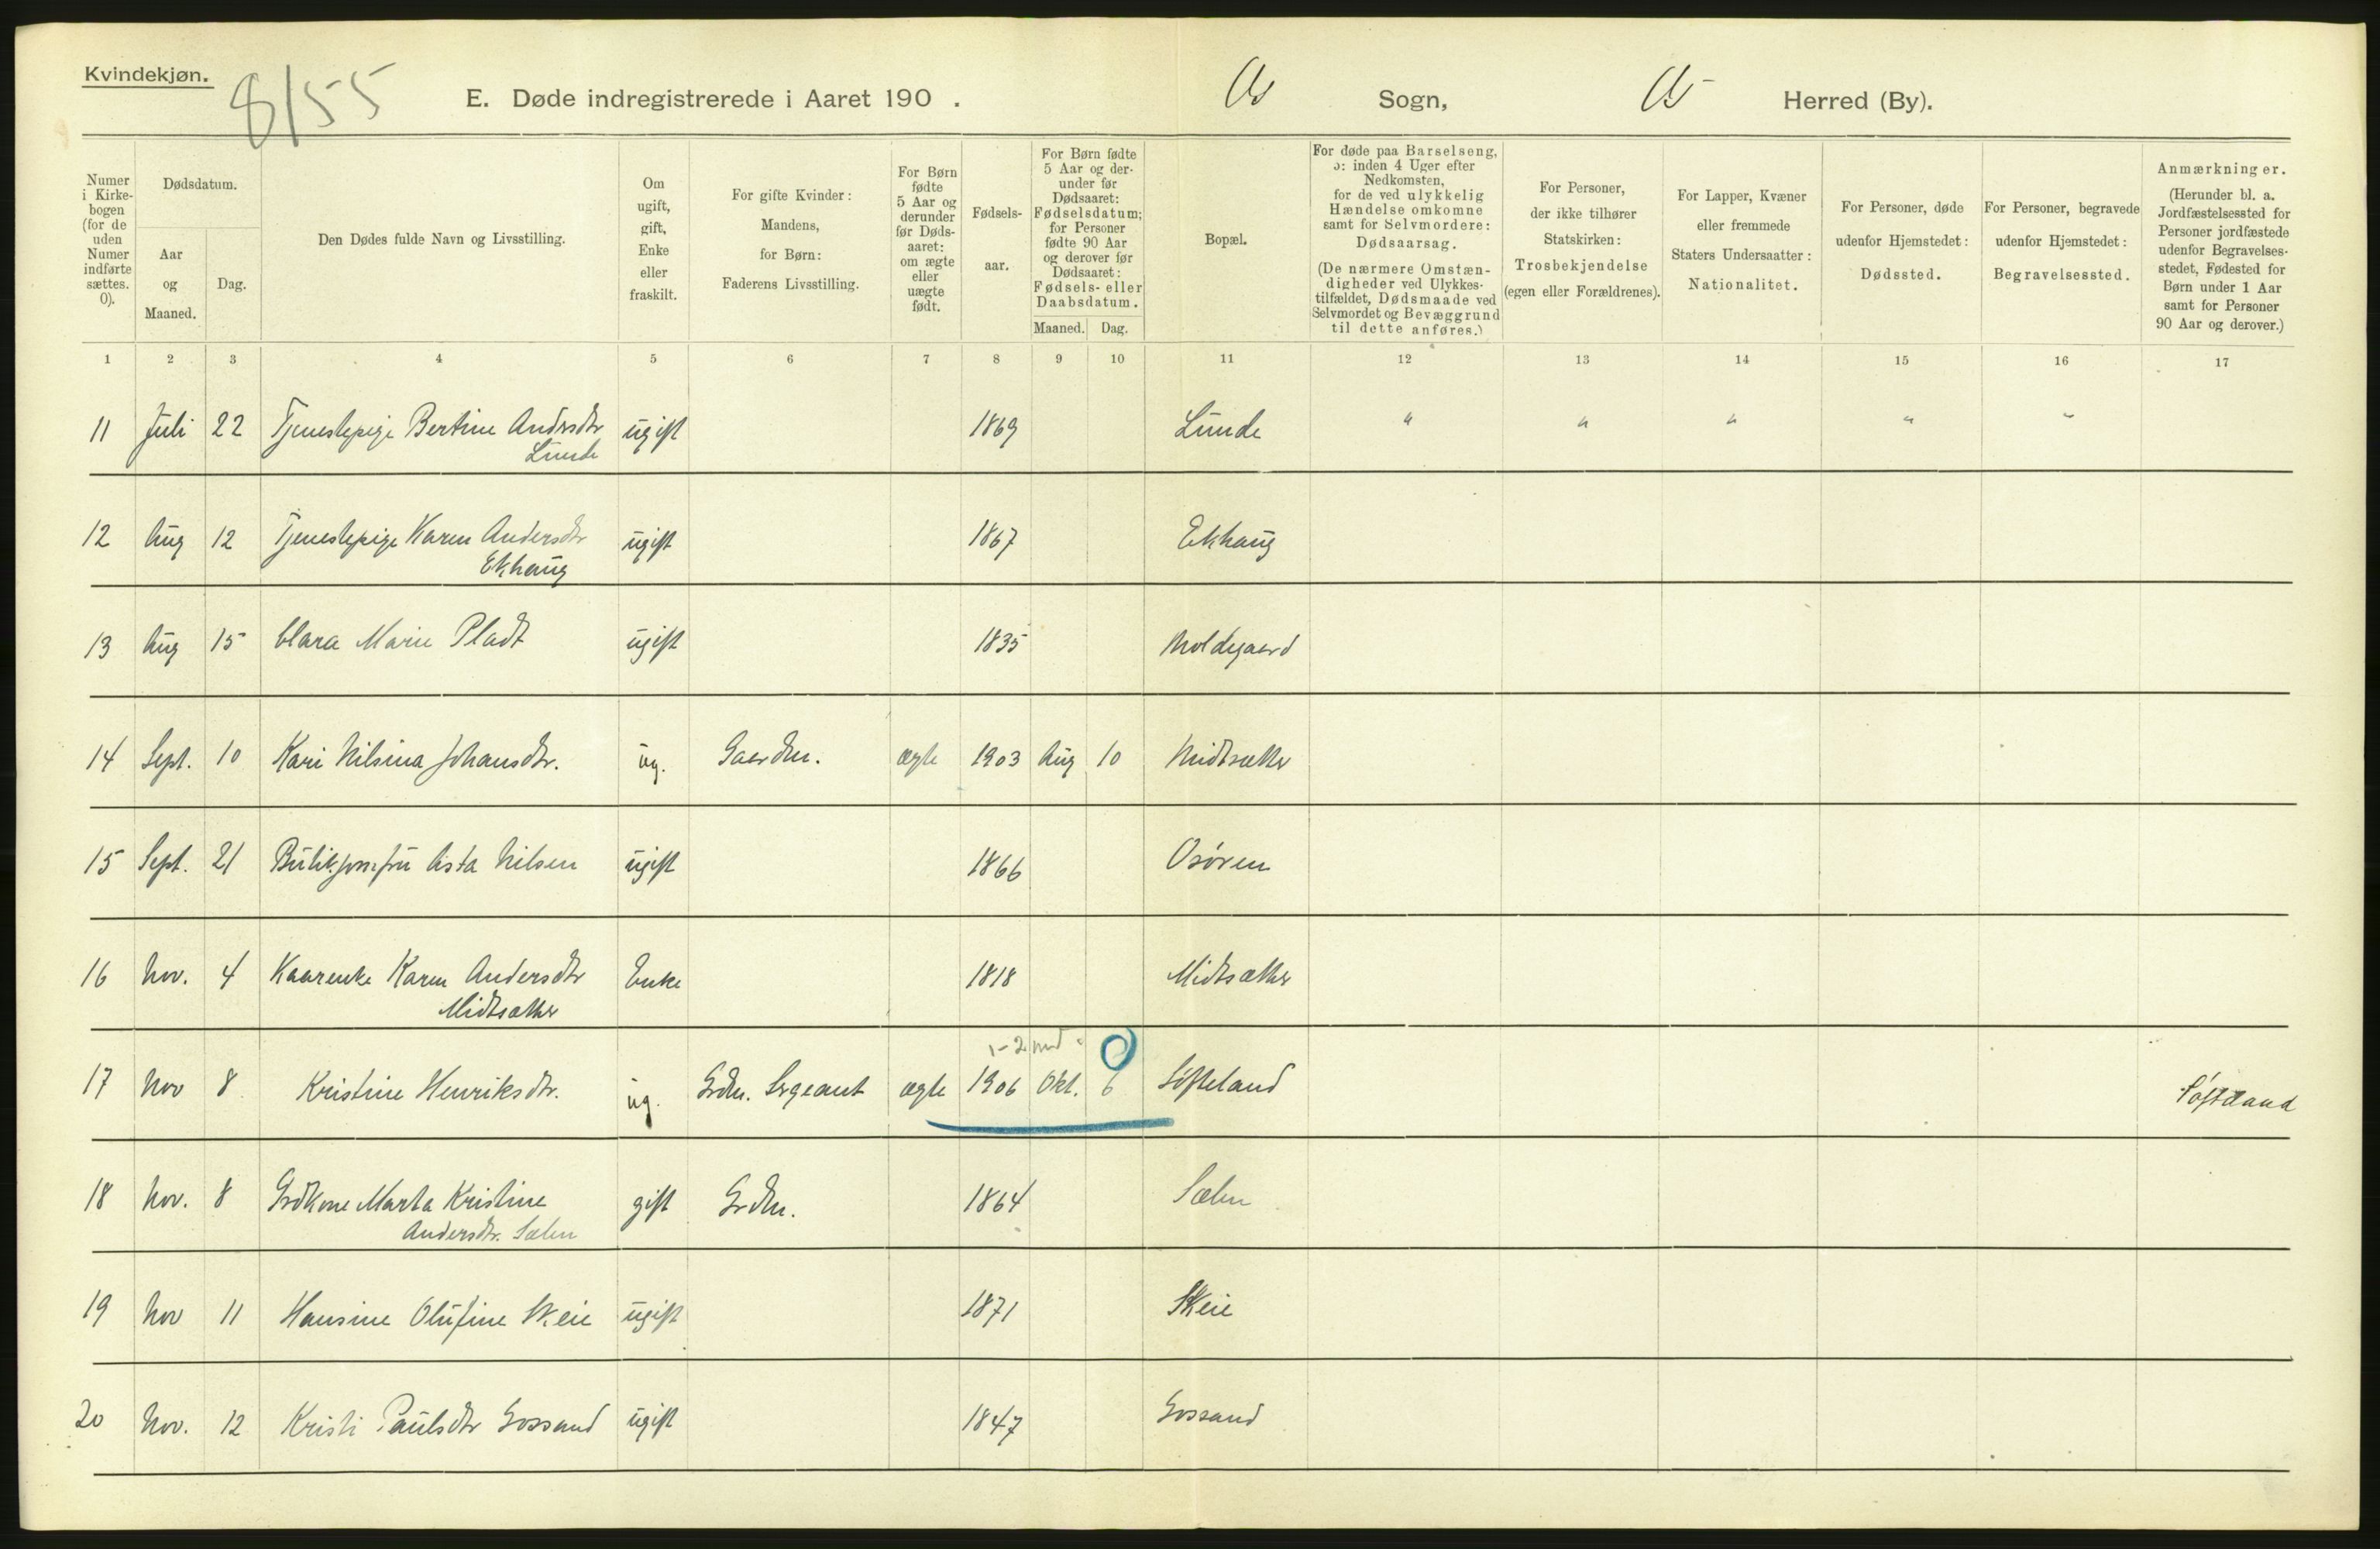 Kvindekjøn.
8/55
E. Døde indregistrerede i Aaret 190 .
Os Sogn, Os Herred (By).
Numer i Kirke-bogen (for de uden Numer indførte sættes. 0).
Dødsdatum.
Aar og Maaned.
Dag.
Den Dødes fulde Navn og Livsstilling.
Om ugift, gift, Enke eller fraskilt.
For gifte Kvinder: Mandens, for Børn: Faderens Livsstilling.
For Børn fødte 5 Aar og derunder før Døds-aaret: om ægte eller uægte født.
Fødsels-aar.
For Børn fødte 5 Aar og der-under før Dødsaaret: Fødselsdatum; for Personer fødte 90 Aar og derover før Dødsaaret: Fødsels- eller Daabsdatum.
Maaned. Dag.
Bopæl.
For døde paa Barselseng, ɔ: inden 4 Uger efter Nedkomsten, for de ved ulykkelig Hændelse omkomne samt for Selvmordere: Dødsaarsag.
(De nærmere Omstæn-digheder ved Ulykkes-tilfældet, Dødsmaade ved Selvmordet og Bevæggrund til dette anføres.)
For Personer, der ikke tilhører Statskirken: Trosbekjendelse (egen eller Forældrenes).
For Lapper, Kvæner eller fremmede Staters Undersaatter: Nationalitet.
For Personer, døde udenfor Hjemstedet: Dødssted.
For Personer, begravede udenfor Hjemstedet: Begravelsessted.
Anmærkninger.
(Herunder bl. a. Jordfæstelsessted for Personer jordfæstede udenfor Begravelses-stedet, Fødested for Børn under 1 Aar samt for Personer 90 Aar og derover.)
1 2 3 4 5 6 7 8 9 10 11 12 13 14 15 16 17
11 Juli 22 Tjenestepige Bertine Andrsdtr ugift 1869 Lunde " " " " "
Lunde
12 Aug 12 Tjenestepige Karen Andersdtr ugift 1867 Ekhaug
Ekhaug
13 Aug 15 Clara Marie Pladt ugift 1835 Moldegaard
14 Sept. 10 Kari Nilsina Johansdtr. ug. Gaardm. ægte 1903 Aug 10 Midtsæther
15 Sept. 21 Butikjomfru Asta Nilsen ugift 1866 Osøren
16 Nov. 4 Kaarenke Karen Andersdtr Enke 1818 Midtsæther
Midtsæther
1-2 md.
17 Nov 8 Kristine Henriksdtr. ug. Grdm. Sergeant ægte 1906 Okt. 6 Søfteland Søfteland
18 Nov. 8 Grdkone Marta Kristine gift Grdm. 1864 Sælen
Andersdtr. Sælen
19 Nov 11 Hansine Olufine Skeie ugift 1871 Skeie
20 Nov. 12 Kristi Paulsdtr Gossand ugift 1847 Gossand